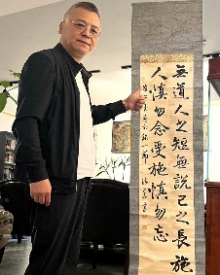 無道人之短無說己之長施
人慎勿念受施慎勿忘